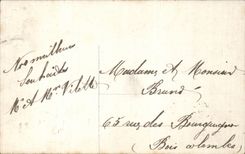 Nos meilleurs
Souhaits
Mr et Mme Vilette
Madame et Monsieur
Brune
65 rue des Bourguignon
Bois colombes